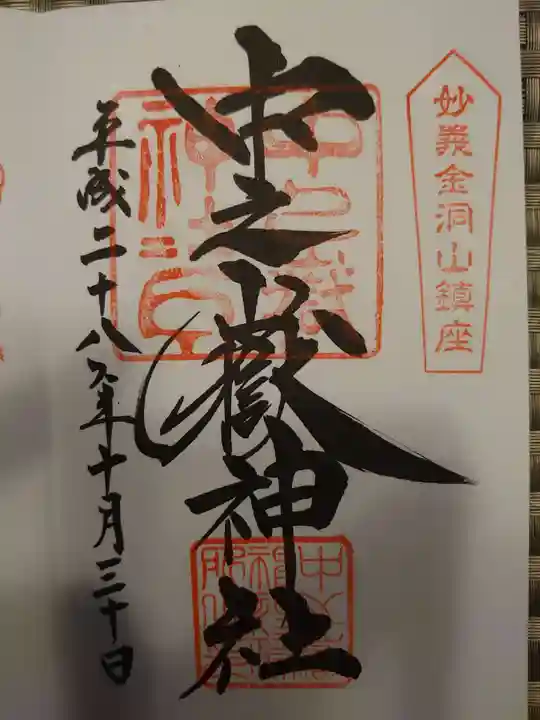 妙義金洞山鎮座
中之嶽神社
平成二十八年十月三十日
中之嶽
神社印